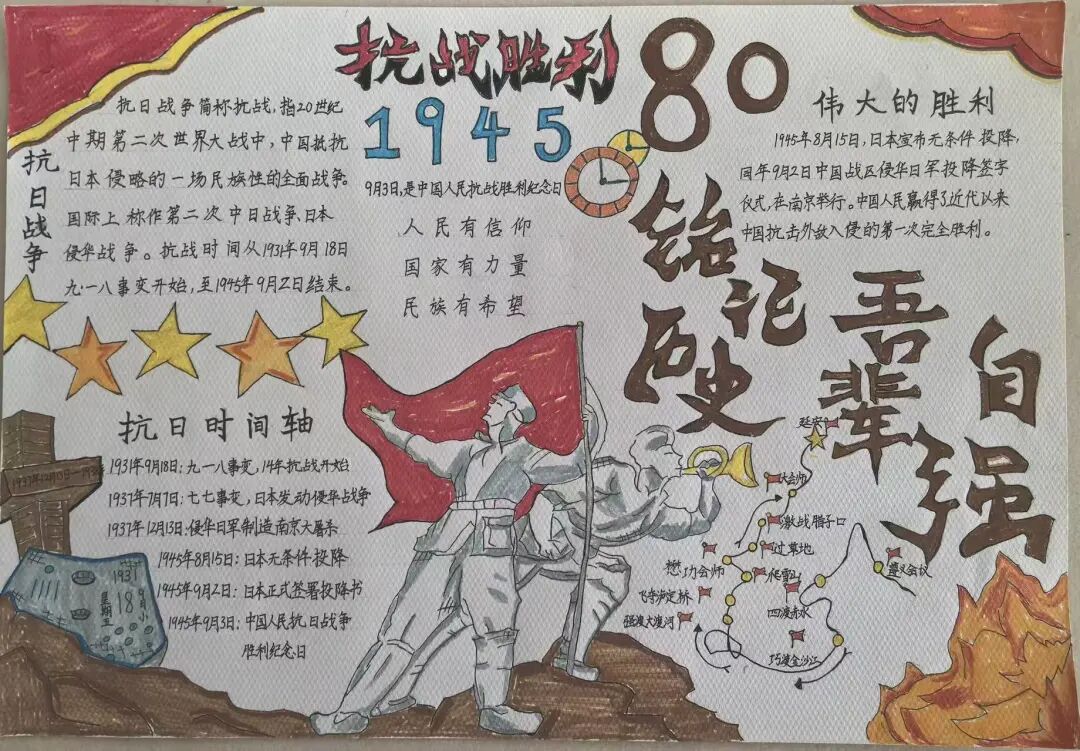 抗战胜利
80
1945
9月3日,是中国人民抗战胜利纪念日
人民有信仰
国家有力量
民族有希望
抗日战争
抗日战争简称抗战,指20世纪
中期第二次世界大战中,中国抵抗
日本侵略的一场民族性的全面战争。
国际上称作第二次中日战争,日本
侵华战争。抗战时间从1931年9月18日
九·一八事变开始,至1945年9月2日结束。
伟大的胜利
1945年8月15日,日本宣布无条件投降,
同年9月2日中国战区侵华日军投降签字
仪式,在南京举行。中国人民赢得了近代以来
中国抗击外敌入侵的第一次完全胜利。
铭记
历史
吾辈
自强
抗日时间轴
1931年9月18日:九一八事变,14年抗战开始
1937年7月7日:七七事变,日本发动侵华战争
1937年12月13日:侵华日军制造南京大屠杀
1945年8月15日:日本无条件投降
1945年9月2日:日本正式签署投降书
1945年9月3日:中国人民抗日战争
胜利纪念日
1937年12月13日
1931
9月小
18
星期五
延安
大会师
激战腊子口
过草地
爬雪山
懋功会师
飞夺泸定桥
强渡大渡河
四渡赤水
巧渡金沙江
遵义会议